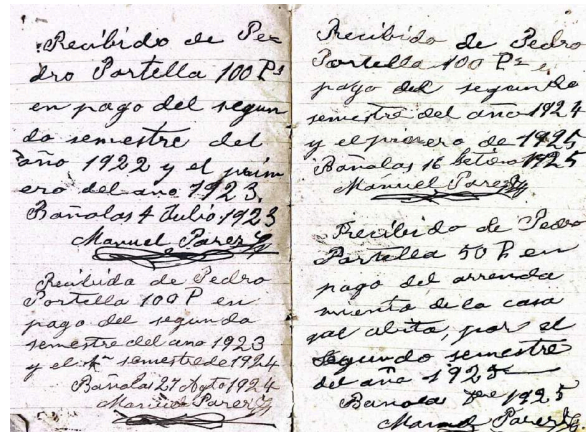 Recibido de Pe
dro Portella 100 Ps
en pago del segun
do semestre del
año 1922 y el prim
ero del ano 1923.
Bañolas 4 Julio 1923
Manuel Parer
Recibido de Pedro
Portella 100 P en
pago del segundo
semestre del ano 1923
y el 1er semestre de 1924
Bañolas 27 Agto 1924
Manuel Parer
Recibido de Pedro
Portella 100 Ps en
pago del segundo
semestre del año 1924
y el primero de 1925
Bañolas 16 Setbre 1925
Manuel Parer
Recibido de Pedro
Portella 50 P en
pago del arrenda
miento de la casa
qal abita, por el
segundo semestre
del año 1925
Bañolas 1925
Manuel Parer